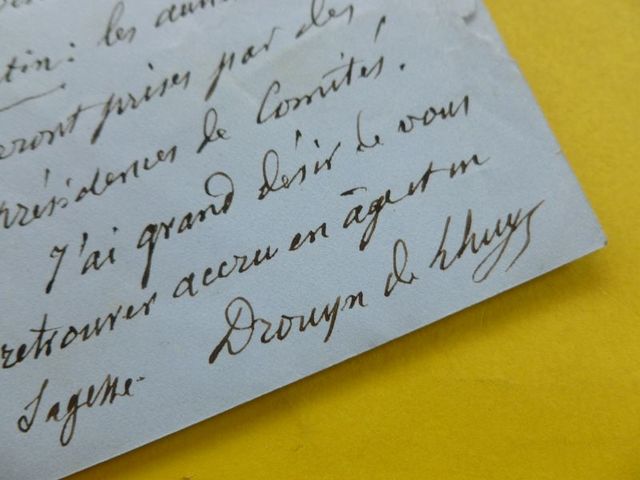 tin : les
eront prises par des
présidences de Comités.
J'ai grand désir de vous
retrouver accru en âge et en
Sagesse.
Drouyn de Lhuys